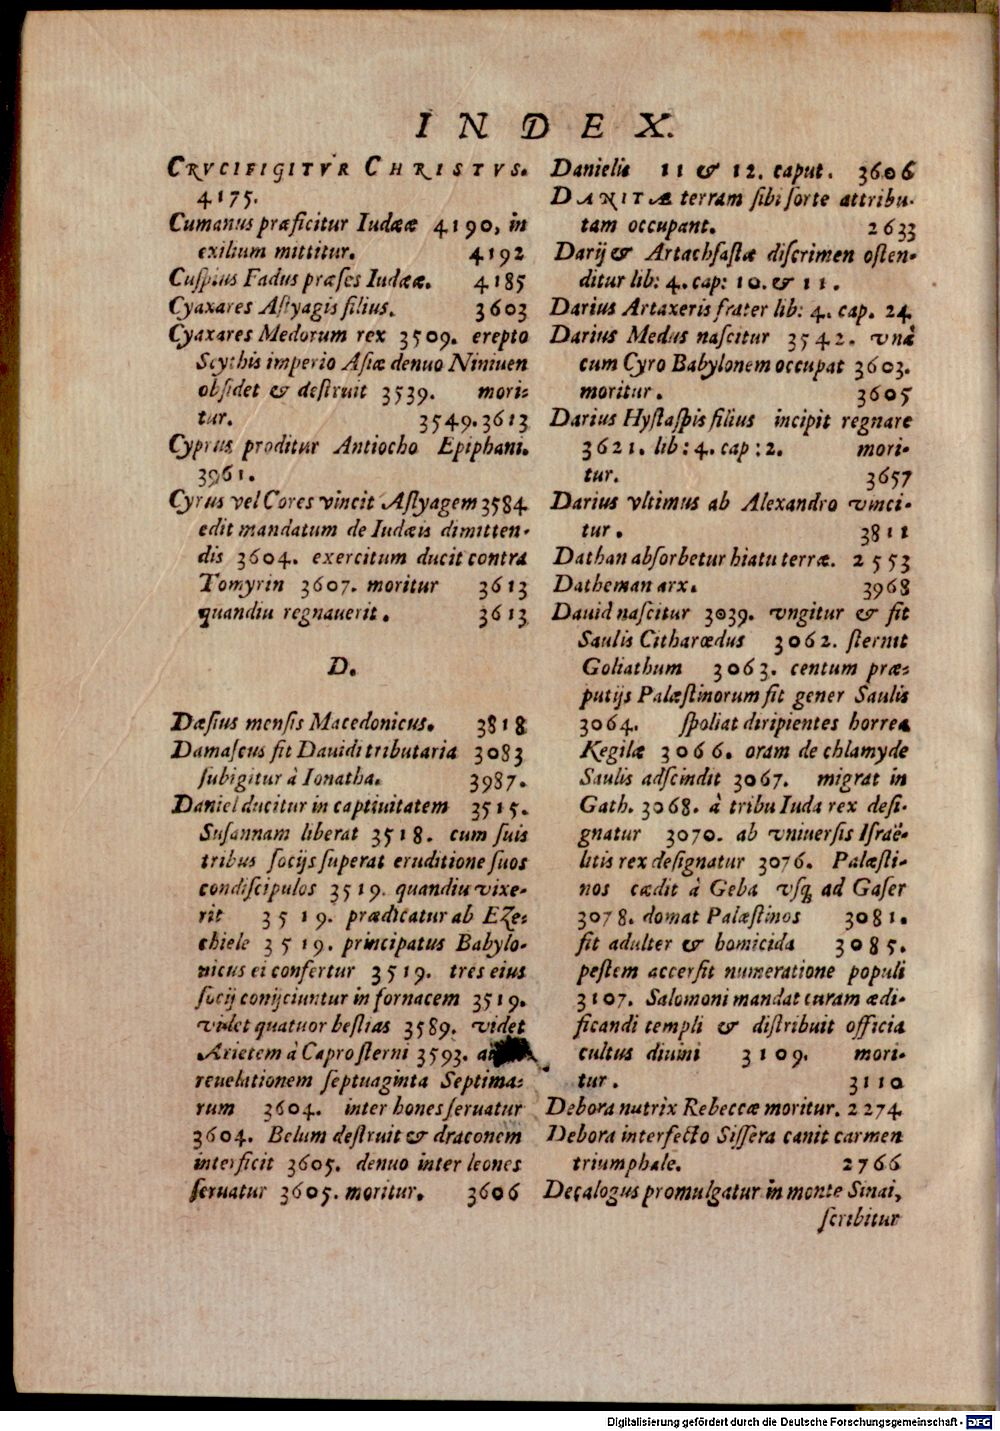 INDEX.
CRVCIFIGITVR CHRISTVS.
4175.
Cumanus præficitur Iudææ 4190, in
exilium mittitur. 4192
Cuſpius Fadus præſes Iudææ. 4185
Cyaxares Aſtyagis filius. 3603
Cyaxares Medorum rex 3509. erepto
Scythis imperio Aſiæ denuo Niniuen
obſidet & deſtruit 3539. mori-
tur. 3549.3613
Cyprus proditur Antiocho Epiphani.
3961.
Cyrus vel Cores vincit Aſtyagem 3584
edit mandatum de Iudæis dimitten-
dis 3604. exercitum ducit contra
Tomyrin 3607. moritur 3613
quandiu regnauerit. 3613
D.
Dæſius menſis Macedonicus. 3818
Damaſcus fit Dauidi tributaria 3083
ſubigitur à Ionatha. 3987.
Daniel ducitur in captiuitatem 3515.
Suſannam liberat 3518. cum ſuis
tribus ſocijs ſuperat eruditione ſuos
condiſcipulos 3519. quandiu vixe-
rit 3519. prædicatur ab Eze-
chiele 3519. principatus Babylo-
nicus ei confertur 3519. tres eius
ſocij conijciuntur in fornacem 3519.
videt quatuor beſtias 3589. videt
Arietem à Capro ſterni 3593.
reuelationem ſeptuaginta Septima-
rum 3604. inter hones ſeruatur
3604. Belum deſtruit & draconem
interficit 3605. denuo inter leones
ſeruatur 3605. moritur. 3606
Danielis 11 & 12. caput. 3606
DANITÆ terram ſibi ſorte attribu-
tam occupant. 2633
Darij & Artachſaſtæ diſcrimen oſten-
ditur lib: 4. cap: 10. & 11.
Darius Artaxeris frater lib: 4. cap. 24
Darius Medus naſcitur 3542. vnà
cum Cyro Babylonem occupat 3603.
moritur. 3605
Darius Hyſtaſpis filius incipit regnare
3621. lib: 4. cap: 2. mori-
tur. 3657
Darius vltimus ab Alexandro vinci-
tur. 3811
Dathan abſorbetur hiatu terræ. 2553
Datheman arx. 3968
Dauid naſcitur 3039. vngitur & fit
Saulis Citharœdus 3062. ſternit
Goliathum 3063. centum præ-
putijs Palæſtinorum fit gener Saulis
3064. ſpoliat diripientes horrea
Kegilæ 3066. oram de chlamyde
Saulis adſcindit 3067. migrat in
Gath. 3068. à tribu Iuda rex deſi-
gnatur 3070. ab vniuerſis Iſraë-
litis rex deſignatur 3076. Palæſti-
nos cædit à Geba vſq; ad Gaſer
3078. domat Palæſtinos 3081.
fit adulter & homicida 3085.
peſtem accerſit numeratione populi
3107. Salomoni mandat curam ædi-
ficandi templi & diſtribuit officia
cultus diuini 3109. mori-
tur. 3110
Debora nutrix Rebeccæ moritur. 2274
Debora interfecto Siſſera canit carmen
triumphale. 2766
Decalogus promulgatur in monte Sinai,
ſcribitur
Digitalisierung gefördert durch die Deutsche Forschungsgemeinschaft - DFG